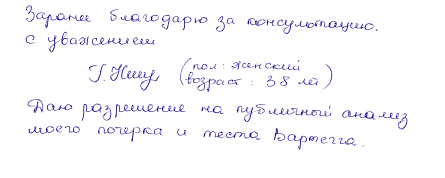 Заранее благодарю за консультацию.
с уважением
(пол: женский
возраст: 38 лет)
Даю разрешение на публичный анализ
моего почерка и теста Вартегга.